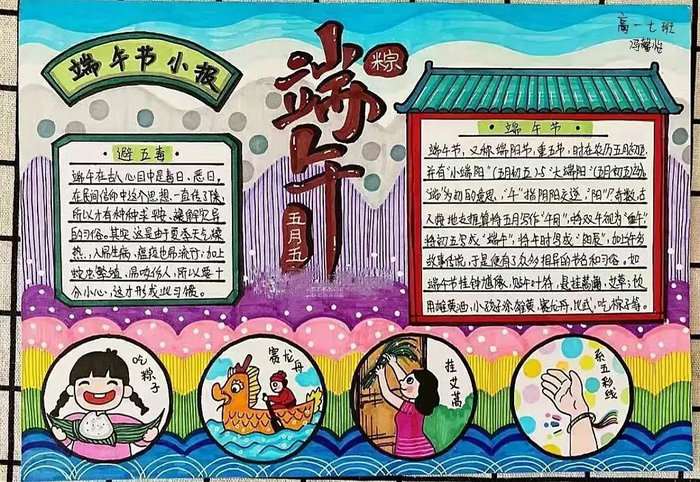 高一七班
冯馨怡
端午节小报
端午
粽
五月五
·避五毒·
端午在古人心目中是毒日、恶日,
在民间信仰中这个思想一直传了
所以才有种种求平安、禳解灾异
的习俗。其实,这是由于夏季天气燥
热,人易生病,瘟疫也易流行;加上
蛇虫繁殖,易咬伤人,所以要十
分小心,这才形成此习俗。
·端午节·
端午节,又称端阳节,重五节,时在农历五月初五,
并有“小端阳”(五月初五)与“大端阳”(五月
“端”为初的意思,“午”指阴阳交逆,“阳”
人按地支推算特五月写作“午月”,特双午视为“重午”
特初五写成“端午”,特午时写成“阳辰”,加上许多
故事传说,于是便有了众多相异的节名和习俗。如
端午节挂钟馗像,贴午叶符,悬挂菖蒲、艾草;饮
用雄黄酒,小孩子涂雄黄,赛龙舟,比武,吃粽子等。
吃粽子
赛龙舟
挂艾蒿
系五彩线